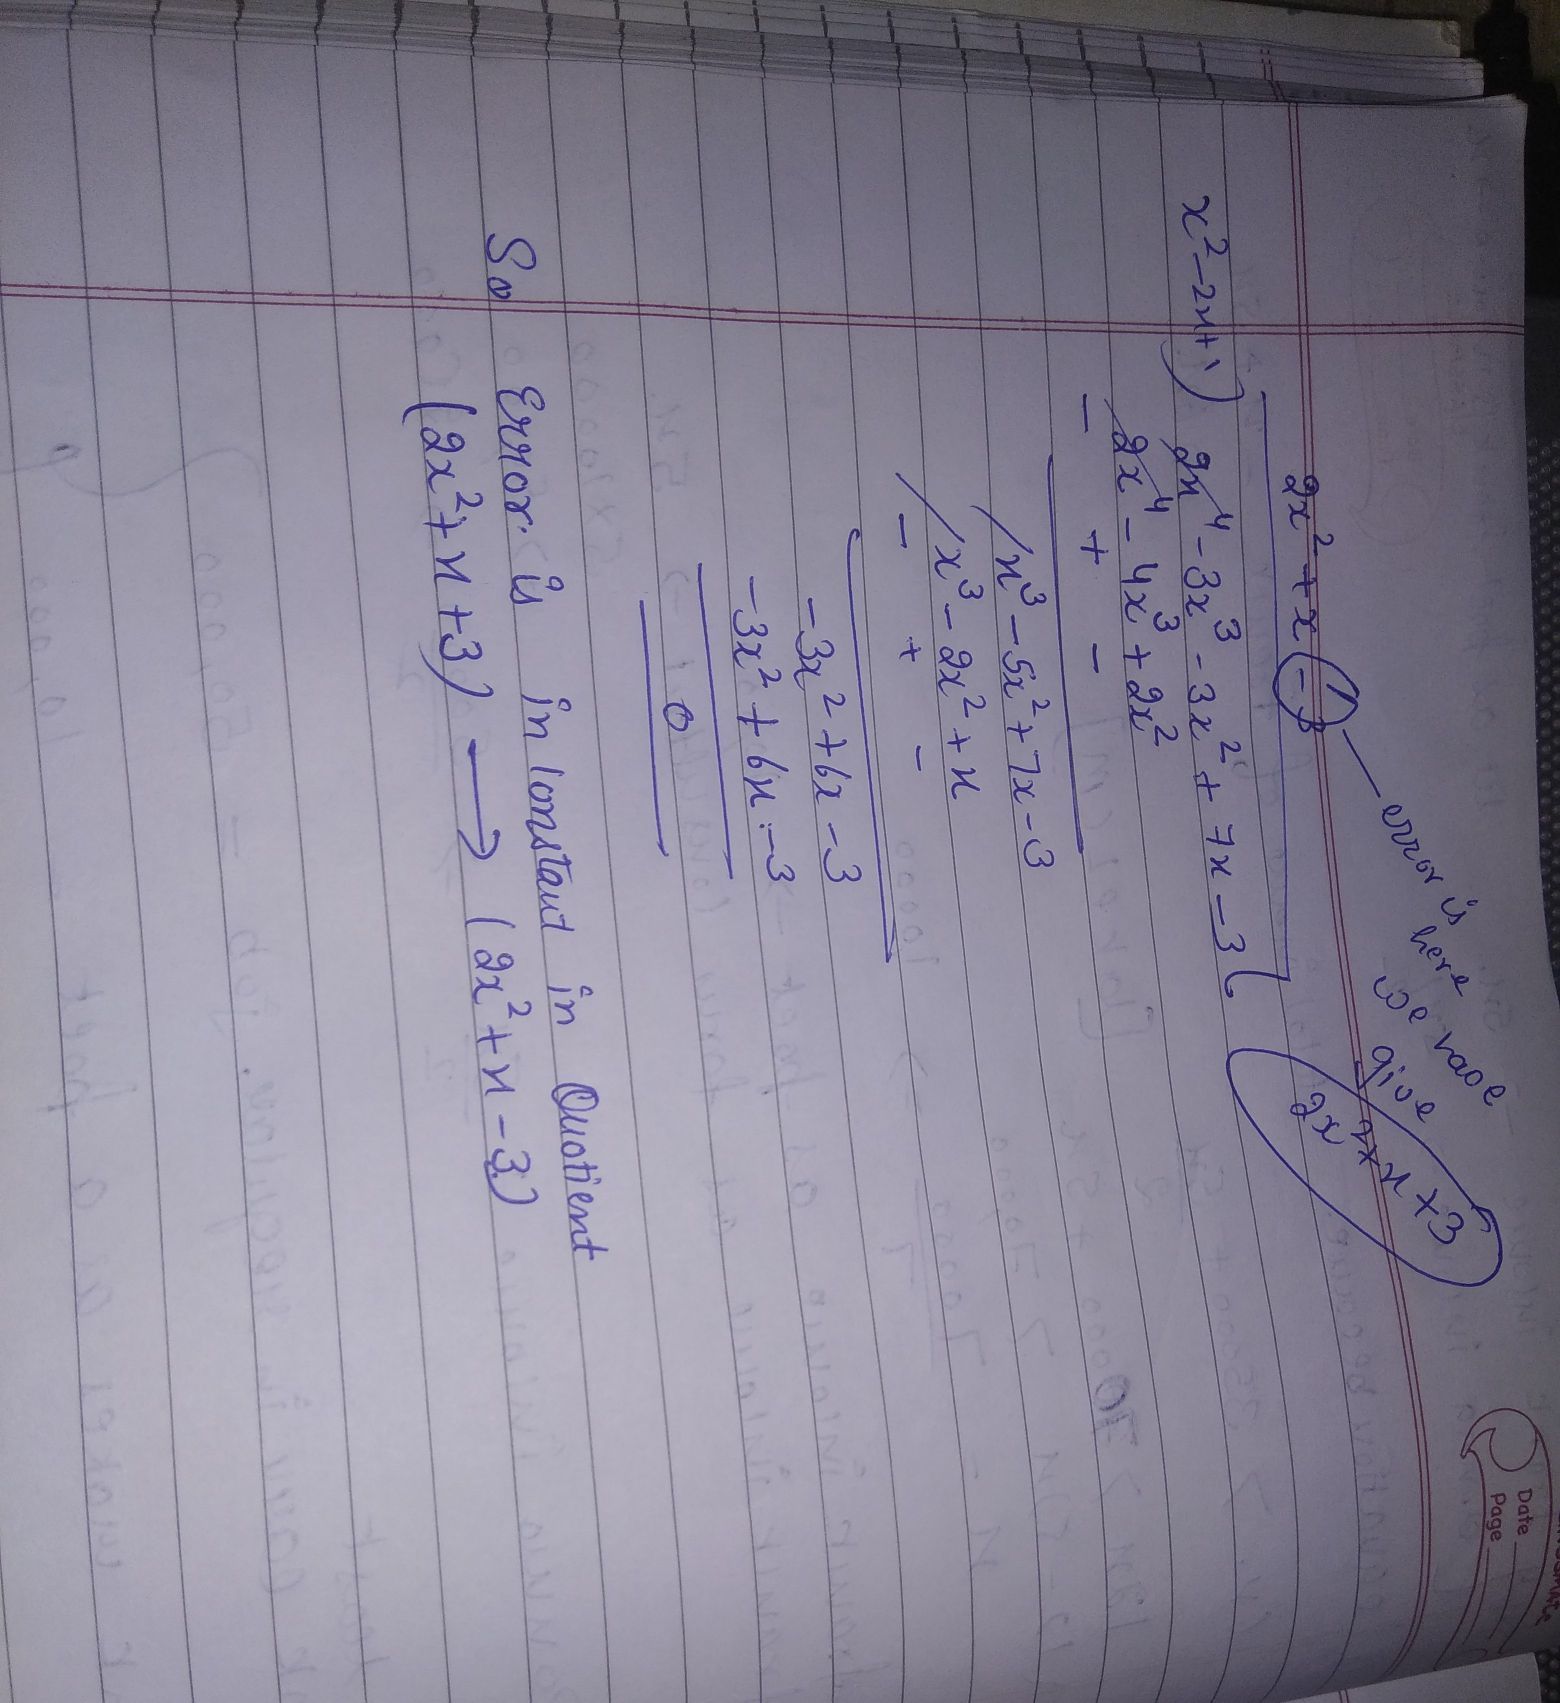 2x² + x - 3 — error is here we have give 2x² + x + 3
x² - 2x + 1 ) 2x⁴ - 3x³ - 3x² + 7x - 3 (
2x⁴ - 4x³ + 2x²
- + -
x³ - 5x² + 7x - 3
x³ - 2x² + x
- + -
-3x² + 6x - 3
-3x² + 6x - 3
0
So Error is in Constant in Quotient
(2x² + x + 3) → (2x² + x - 3)
Date
Page